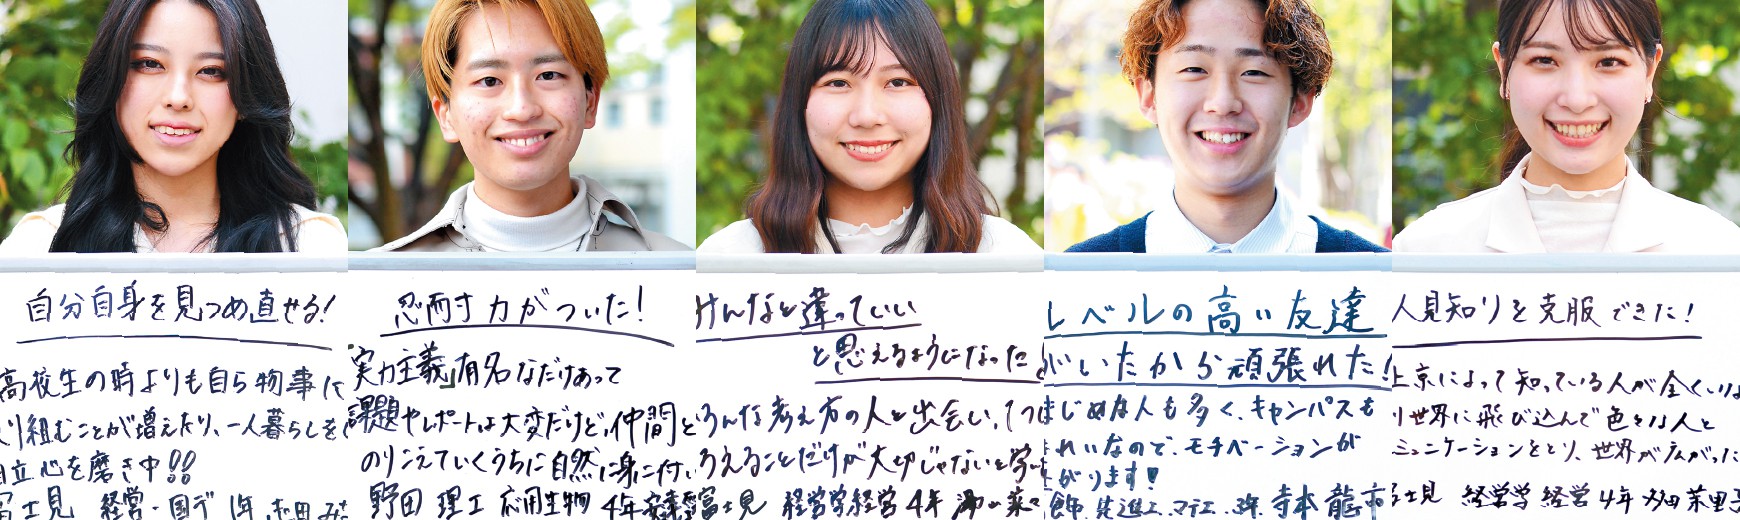 自分自身を見つめ直せる!
高校生の時よりも自ら物事に
り組むことが増えたり、一人暮らしを
自立心を磨き中!!
富士見 経営・国デ 1年
忍耐力がついた!
"実力主義"で有名なだけあって
課題やレポートは大変だけど、仲間と
のりこえていくうちに自然に身に付い
野田 理工 応用生物 4年
みんなと違っていい
と思えるようになった
ろんな考え方の人と出会い、1つ
ろえることだけが大切じゃないと学
富士見 経営学 経営 4年
レベルの高い友達
がいたから頑張れた!
まじめな人も多く、キャンパスも
きれいなので、モチベーションが
上がります!
飾 先進工 マテエ 3年 寺本 龍市
人見知りを克服できた!
上京によって知っている人が全くいな
り世界に飛び込んで色々な人と
ミュニケーションをとり、世界が広がった
富士見 経営学 経営 4年